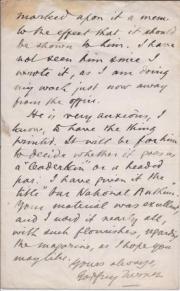 marked upon it a mem.
to the effect that it should
be shown to him. I have
not seen him since I
wrote it, as I am doing
my work just now away
from the office.
He is very anxious, I
know, to have the thing
printed. It will be for him
to decide whether it goes as
a "leaderkin" or a headed
par. I have given it the
title "Our National Anthem".
Your material was excellent,
and I used it nearly all,
with such flourishes, regarding
the magazine, as I hope you
may like.
Yours always,
Godfrey Turner